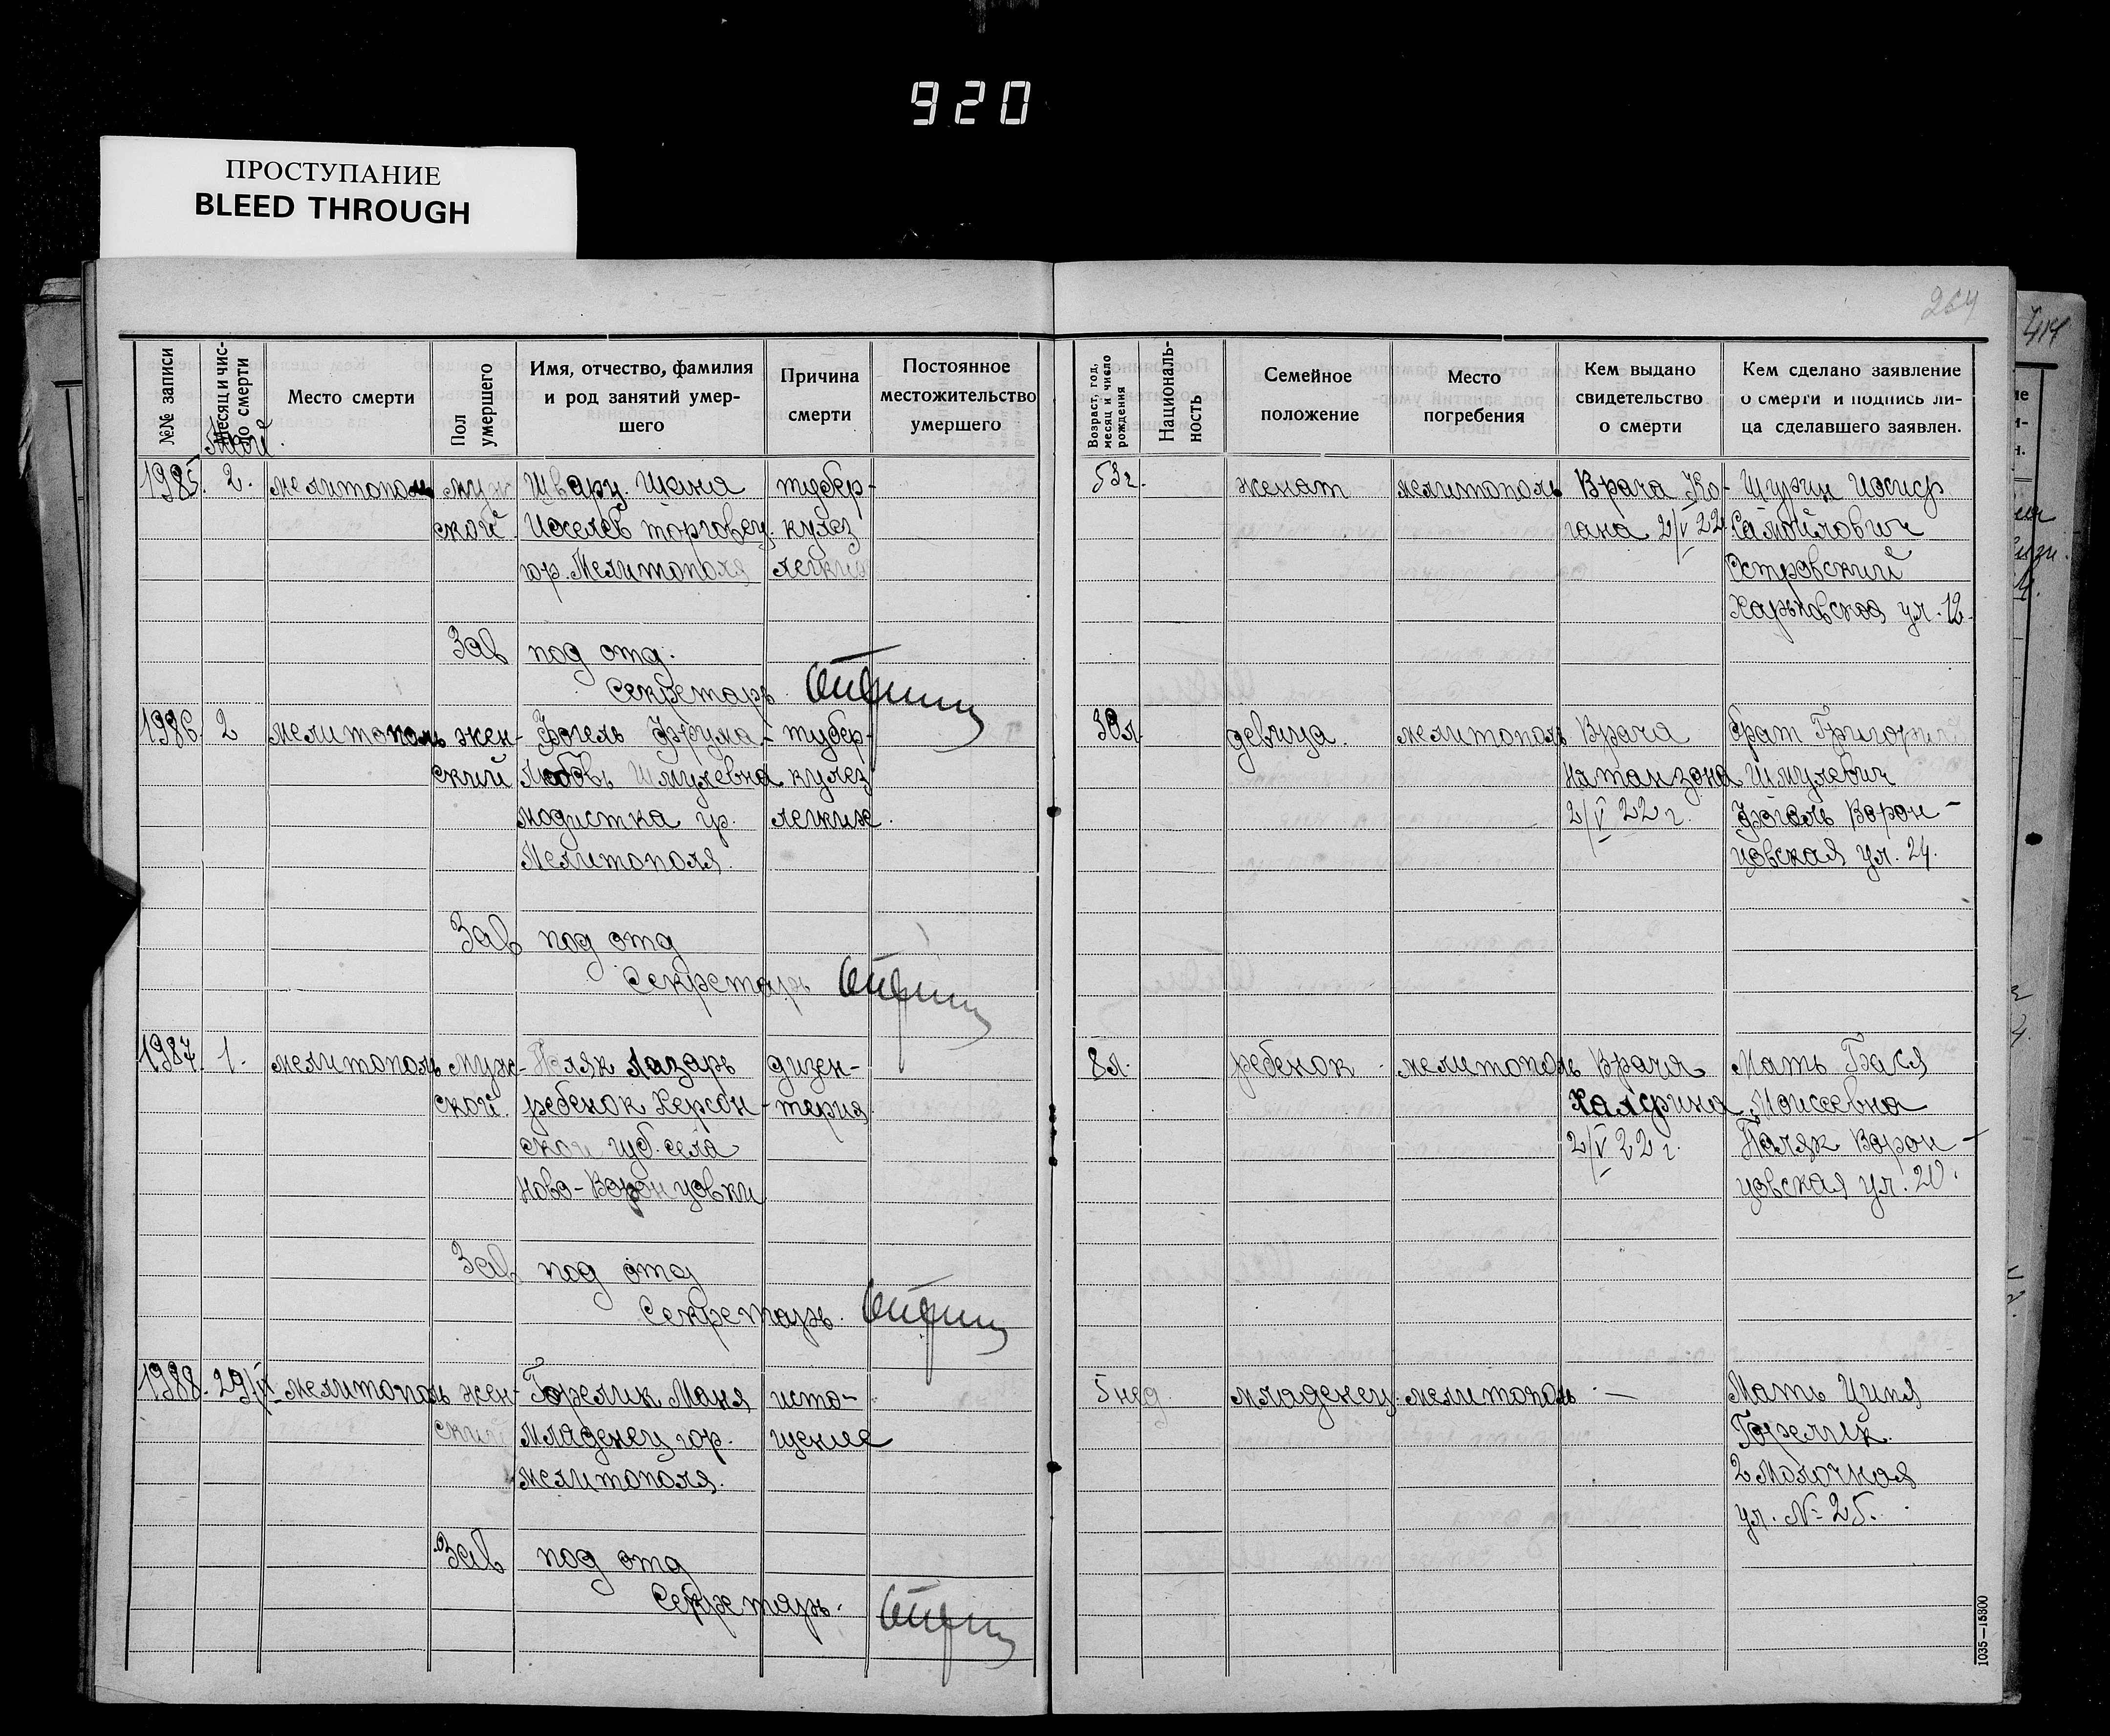 920
ПРОСТУПАНИЕ
BLEED THROUGH
264
414
№№ записи
Месяц и чис-
ло смерти
Место смерти
Пол
умершего
Имя, отчество, фамилия
и род занятий умер-
шего
Причина
смерти
Постоянное
местожительство
умершего
Возраст, год,
месяц и число
рождения
Националь-
ность
Семейное
положение
Место
погребения
Кем выдано
свидетельство
о смерти
Кем сделано заявление
о смерти и подпись ли-
ца сделавшего заявлен.
Май.
1985. 2. мелитополь муж Шварц. тубер- 53г. женат мелитополь Врача Ко- Щурин Иосиф
ской торговец. кулез гана 2/V 22 Самойлович
гор. Мелитополя легких Островский
Харьковская ул. 12.
Зав под отд.
Секретарь
1986. 2 мелитополь жен- Фогель Фрума- тубер- 30л. девица. мелитополь Врача брат Григорий
ский Любовь Шмулевна кулез Натанзона Шмулевич
модистка гр. легких. 2/V 22 г. Фогель Ворон-
Мелитополя. цовская ул. 24.
Зав под отд
Секретарь
1987. 1. мелитополь муж- Поляк Лазарь дизен- 8л. ребенок мелитополь Врача Мать Бася
ской. ребенок Херсон- терия Халфина Моисеевна
ской губ. села 2/V 22 г. Поляк Ворон-
Ново-Воронцовки цовская ул. 20.
Зав под отд
Секретарь.
1988. 29/IV мелитополь жен- Горелик Маня исто- 5 нед младенец. мелитополь — Мать Ципя
ский младенец гор. щение Горелик.
мелитополя. 2 Молочная
ул. № 25.
Зав под отд
Секретарь.
1035—15800